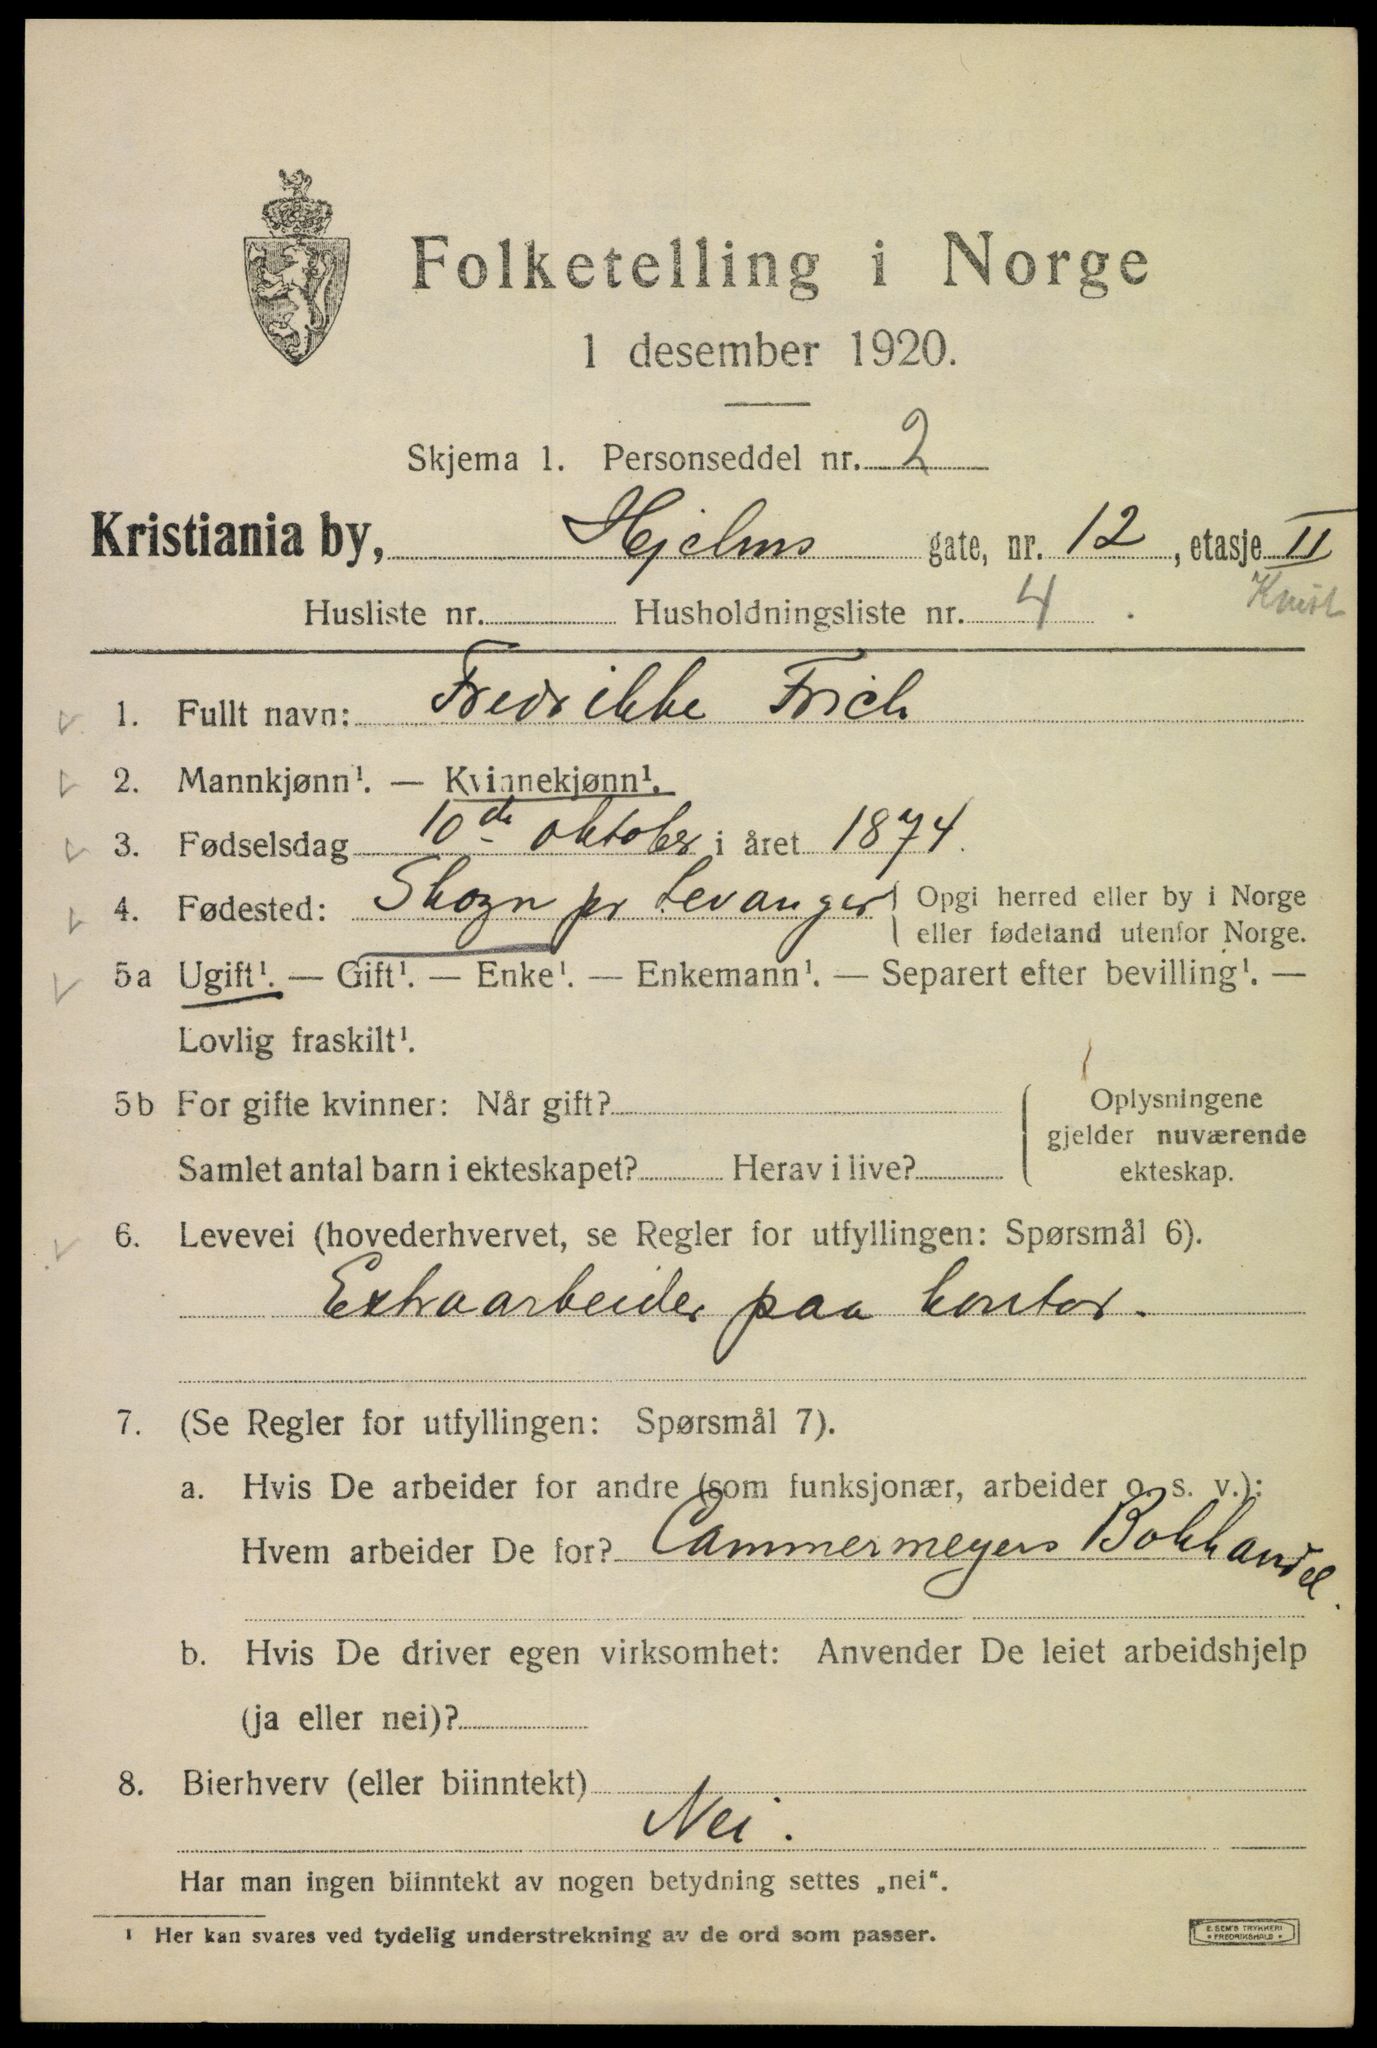 Folketelling i Norge
1 desember 1920.
Skjema 1. Personseddel nr. 2
Kristiania by, Hjelms gate, nr. 12, etasje II
Husliste nr. Husholdningsliste nr. 4.
1. Fullt navn: Fredrikke Frich
2. Mannkjønn¹. — Kvinnekjønn¹.
3. Fødselsdag 10de oktober i året 1874.
4. Fødested: Skogn pr Levanger { Opgi herred eller by i Norge
eller fødeland utenfor Norge.
5a Ugift¹. — Gift¹. — Enke¹. — Enkemann¹. — Separert efter bevilling¹. —
Lovlig fraskilt¹.
5b For gifte kvinner: Når gift?
Samlet antal barn i ekteskapet? Herav i live?
Oplysningene
gjelder nuværende
ekteskap.
6. Levevei (hovederhvervet, se Regler for utfyllingen: Spørsmål 6).
Extraarbeider paa kontor.
7. (Se Regler for utfyllingen: Spørsmål 7).
a. Hvis De arbeider for andre (som funksjonær, arbeider o. s. v.):
Hvem arbeider De for? Cammermeyers Bokhandel.
b. Hvis De driver egen virksomhet: Anvender De leiet arbeidshjelp
(ja eller nei)?
8. Bierhverv (eller biinntekt)
Nei.
Har man ingen biinntekt av nogen betydning settes „nei“.
¹ Her kan svares ved tydelig understrekning av de ord som passer.
E. SEM'S TRYKKERI
* FREDRIKSHALD *